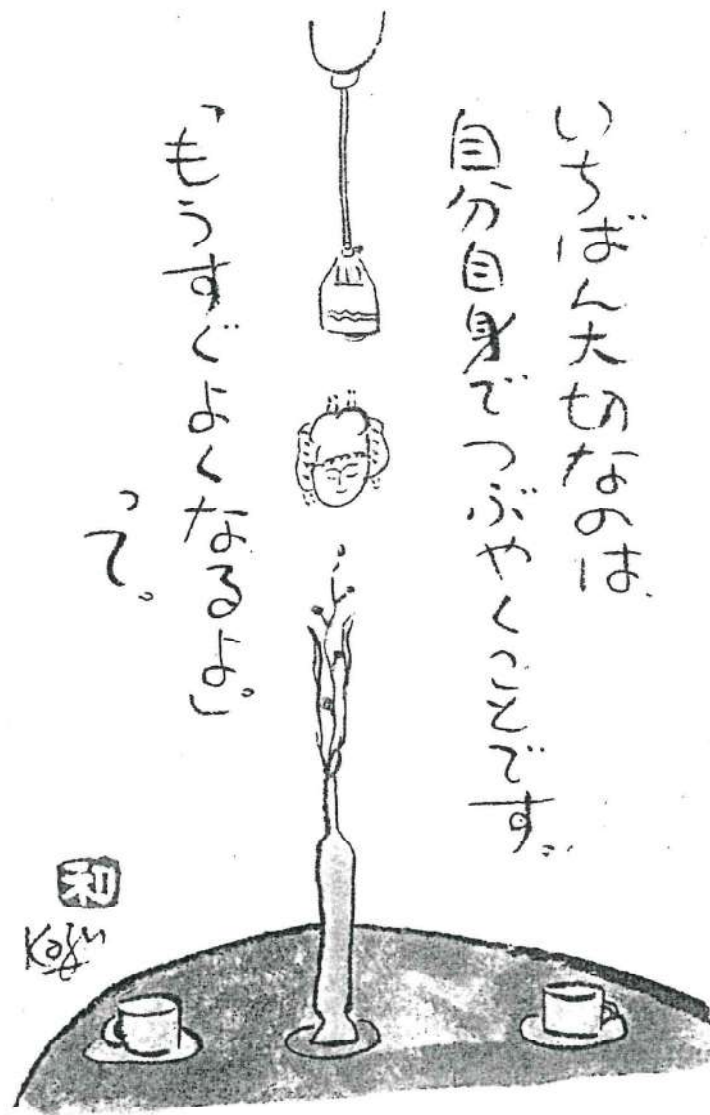 いちばん大切なのは、
自分自身でつぶやくことです。
「もうすぐよくなるよ」
って。
和
Kazu